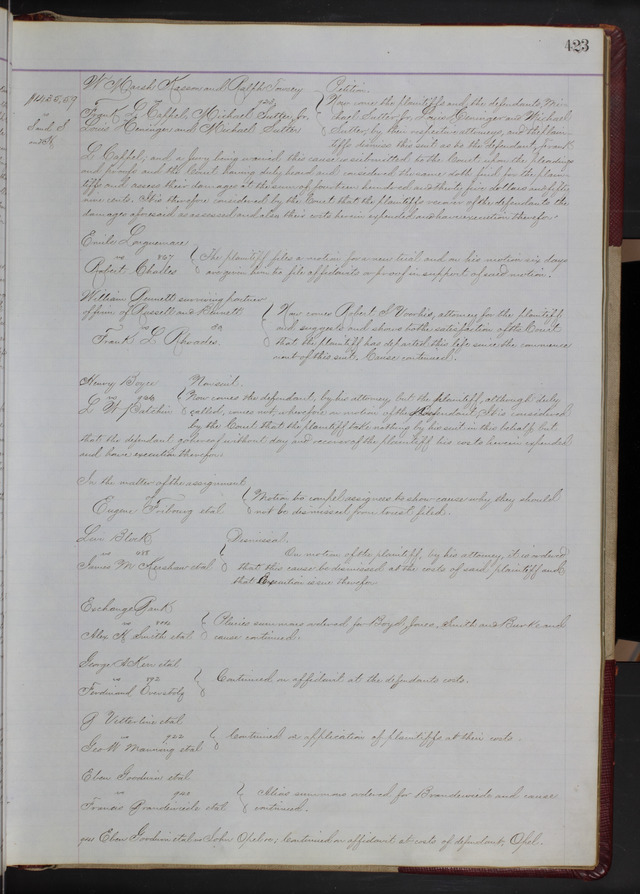 423
W Marsh Kasson and Ralph Tousey Petition
$1435,59 vs 923 Now come the plaintiffs and the defendants, Mi
Frank L Cappel, Michael Sutter, Jr. chael Sutter Jr, Louis Heminger and Michael
Louis Heminger and Michael Sutter Sutter by their respective attorneys, and the plain
tiffs dismiss this suit as to the defendant, Frank
L Cappel, and a jury being waived, this cause is submitted to the Court upon the pleadings
and proofs and the Court having duly heard and considered the same doth find for the plain
tiffs and assess their damages at the sum of fourteen hundred and thirty five dollars and fifty
nine cents. It is therefore considered by the Court that the plaintiffs recover of the defendants the
damages aforesaid as assessed and also their costs herein expended and have execution therefor.
Emile Longuemare
vs 927 The plaintiff files a motion for a new trial and on his motion six days
Robert Charles are given him to file affidavits or proof in support of said motion.
William Bennett surviving partner
of firm of Russell and Bennett Now comes Robert S Voorhis, attorney for the plaintiff
vs and suggests and shows to the satisfaction of the Court
Frank L Rhoades. that the plaintiff has departed this life since the commence
ment of this suit. Cause continued.
Henry Boyce Nonsuit.
vs 936 Now comes the defendant, by his attorney but the plaintiff, although duly
L W Patchin called, comes not, wherefore on motion of the defendant, It is considered
by the Court that the plaintiff take nothing by his suit in this behalf but
that the defendant go hereof without day and recover of the plaintiff his costs herein expended
and have execution therefor.
In the matter of the assignment
of Motion to compel assignees to show cause why they should
Eugene Fribourg etal not be dismissed from trust filed.
Levi Block Dismissal.
vs On motion of the plaintiff, by his attorney, it is ordered
James M Kershaw etal that this cause be dismissed at the costs of said plaintiff and
that Execution issue therefor
Exchange Bank
vs Pluries summons ordered for Boyd, Jones, Smith and Burke and
Alex K Smith etal cause continued.
George A Kerr etal
vs 972 Continued on affidavit at the defendants costs.
Ferdinand Overstolz
G Vetterlein etal
vs 922 Continued on application of plaintiffs at their costs.
Geo W Manning etal
Eben Goodwin etal
vs Alias summons ordered for Brandeweede and cause
Francis Brandeweede etal continued.
Eben Goodwin etal vs John Opel; Continued on affidavit at costs of defendant, Opel.